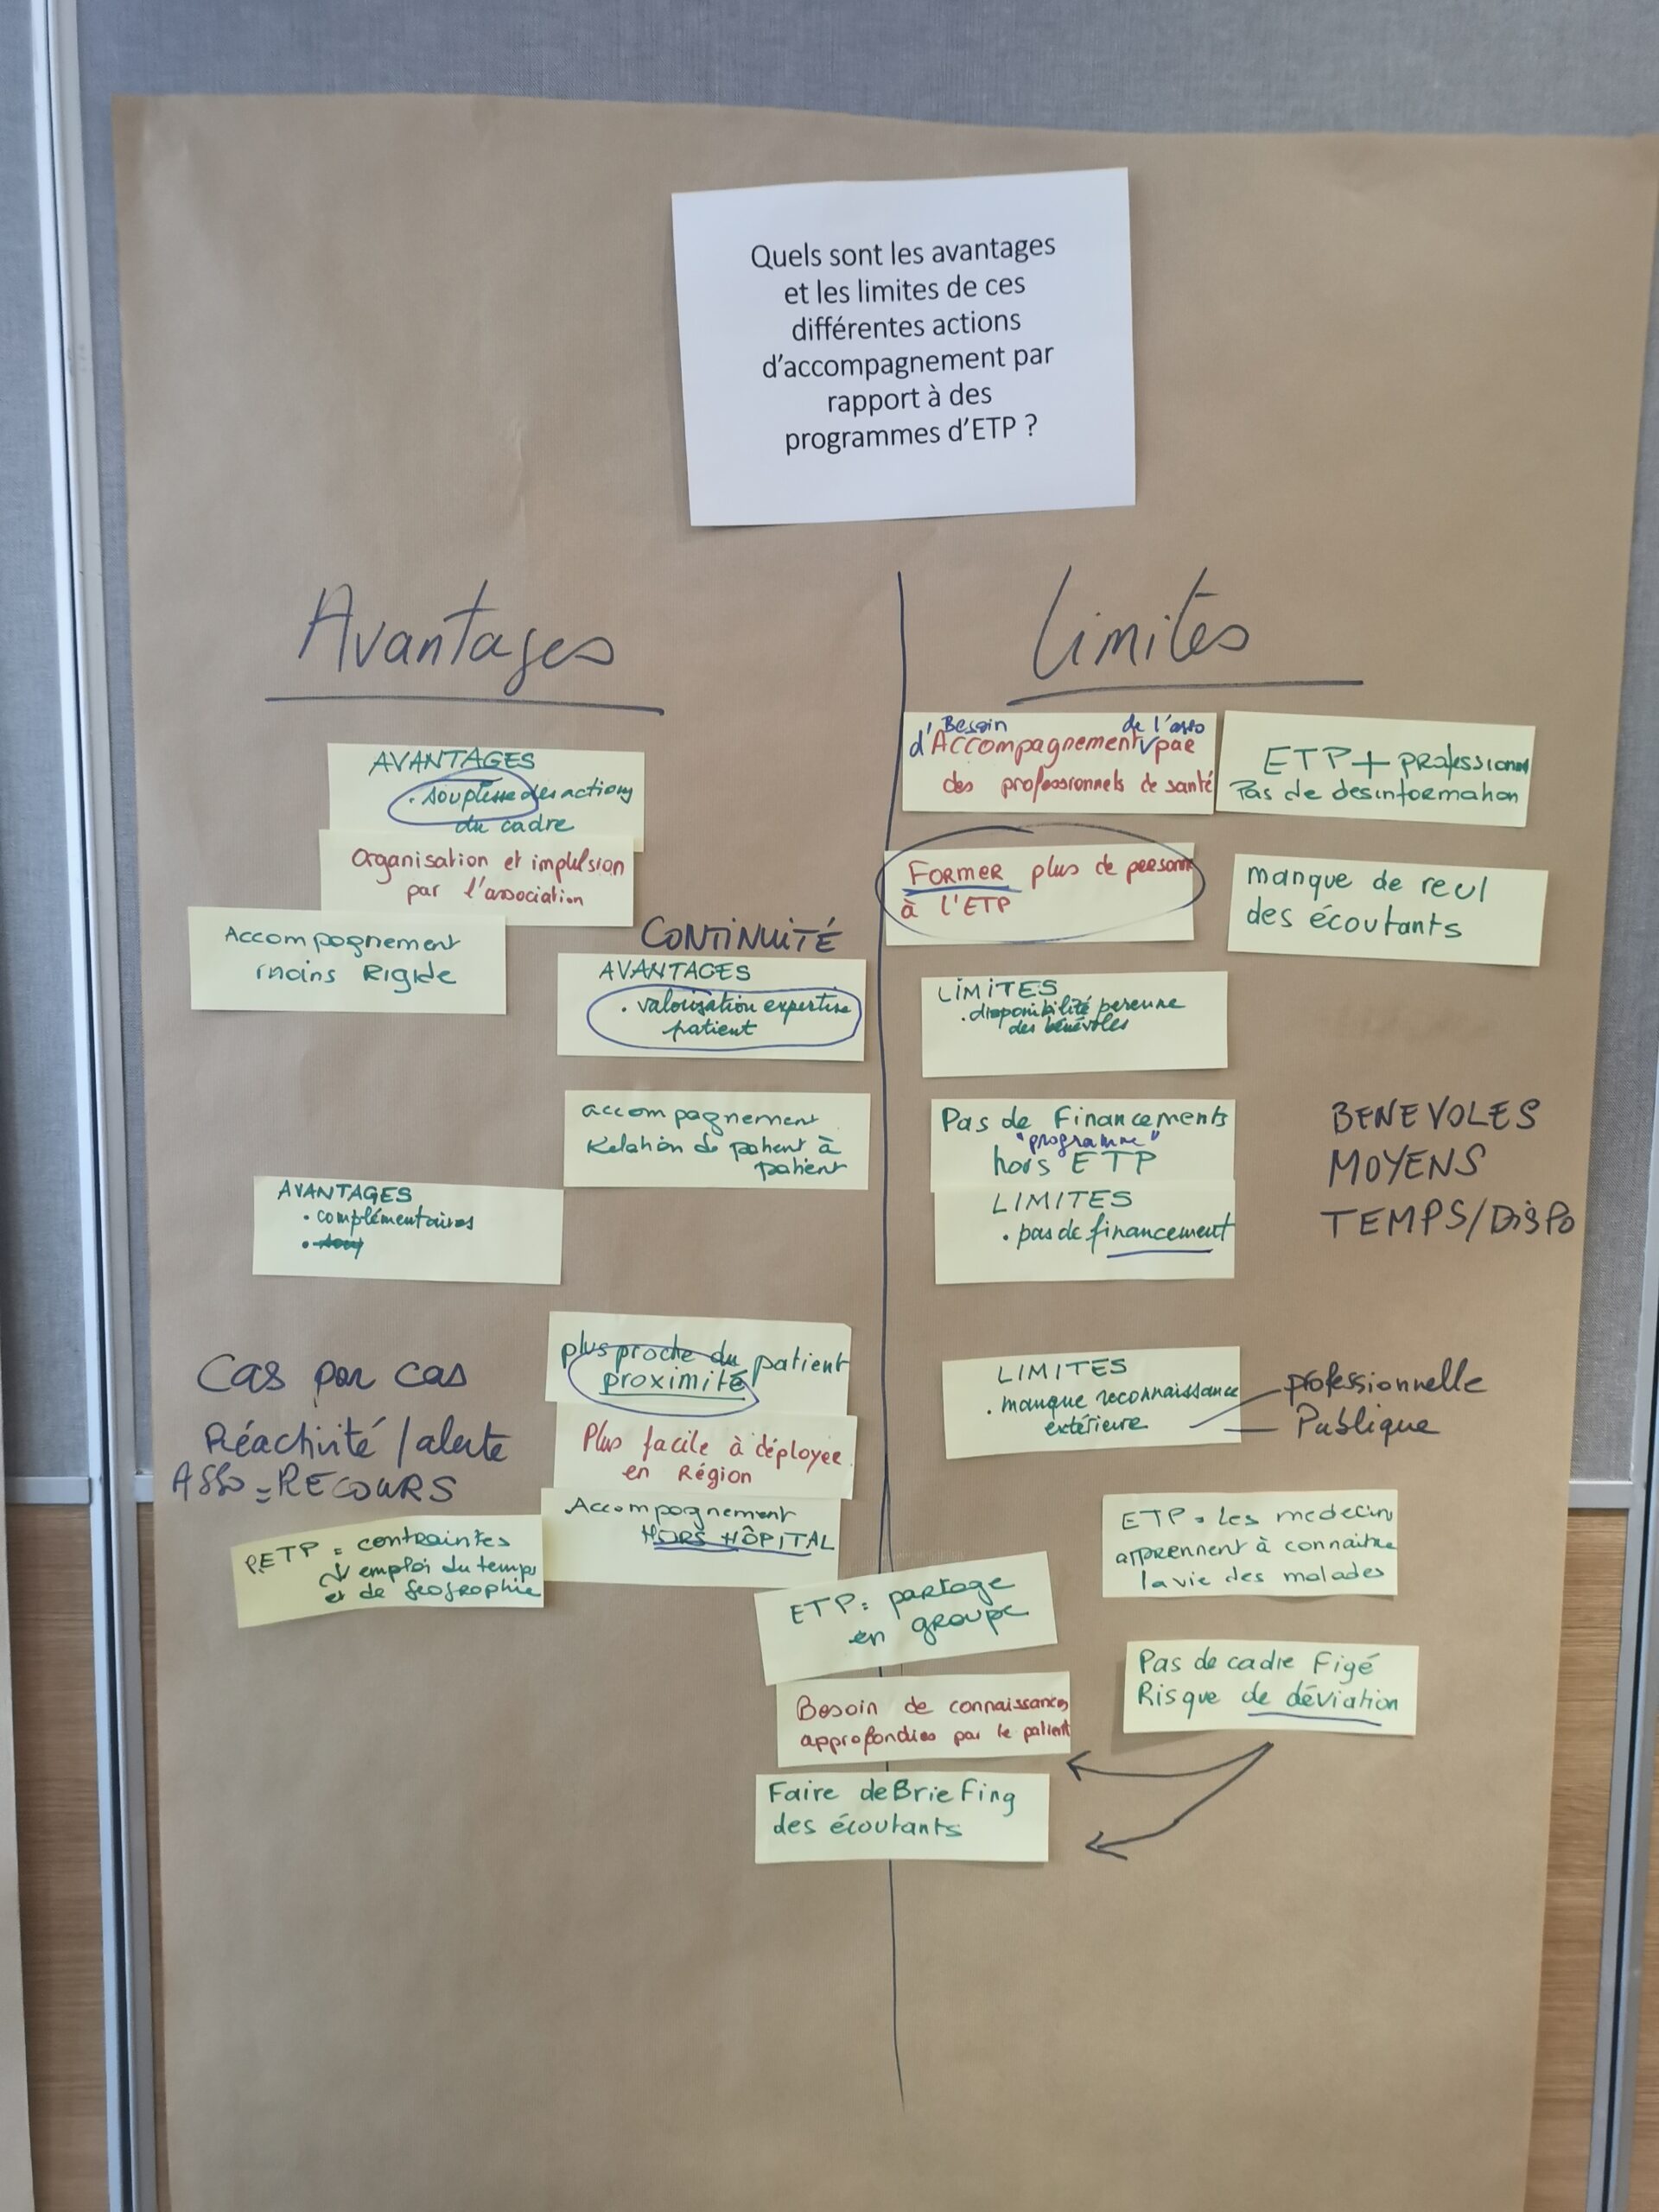 Quels sont les avantages
et les limites de ces
différentes actions
d'accompagnement par
rapport à des
programmes d'ETP ?
Avantages
AVANTAGES
. souplesse des actions
du cadre
Organisation et impulsion
par l'association
Accompagnement
moins Rigide
CONTINUITÉ
AVANTAGES
. valorisation expertise
patient
accompagnement
Relation de patient à
patient
AVANTAGES
. complémentaires
.
plus proche du patient
proximité
Plus facile à déployer
en Région
Accompagnement
HORS HÔPITAL
Cas par cas
Réactivité / alerte
ASSO = RECOURS
PETP = contraintes
emploi du temps
et de géographie
Limites
Besoin de l'asso
d'Accompagnement par
des professionnels de santé
ETP + professionnel
Pas de desinformation
Former plus de personne
à l'ETP
manque de recul
des écoutants
LIMITES
. disponibilité perenne
des bénévoles
Pas de Financements
"programme"
hors ETP
LIMITES
. pas de financement
BENEVOLES
MOYENS
TEMPS/DISPO
LIMITES
. manque reconnaissance
extérieure
professionnelle
Publique
ETP = les medecins
apprennent à connaitre
la vie des malades
ETP = partage
en groupe
Pas de cadre Figé
Risque de déviation
Besoin de connaissances
approfondies par le patient
Faire deBrieFing
des écoutants